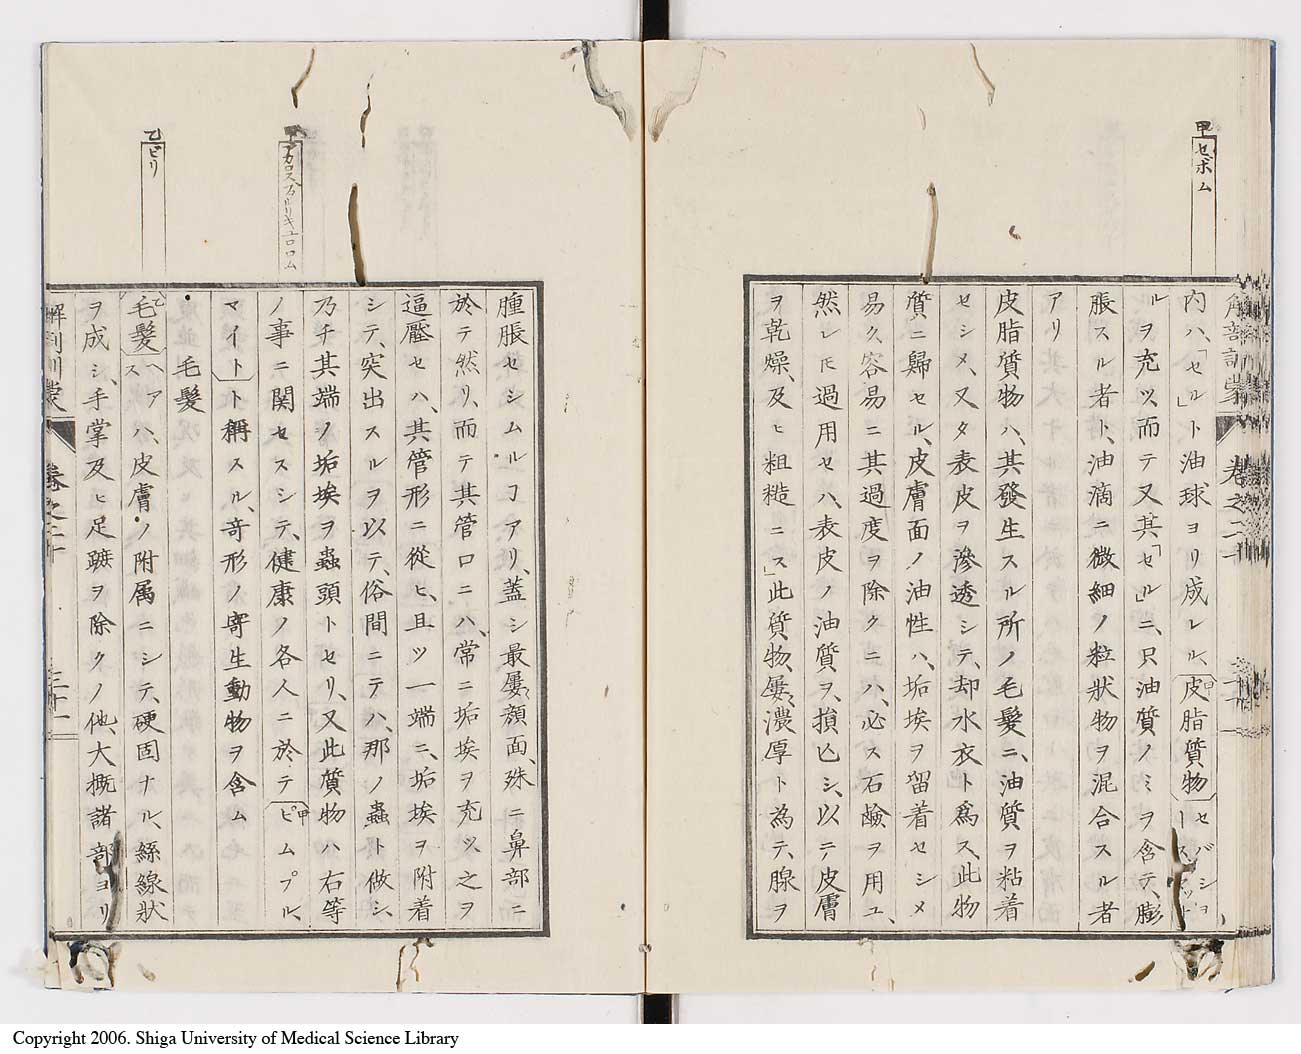 甲セボム
内ハ、「セル」ト油球ヨリ成レル、皮脂質物
ルヲ充ツ、而テ又其「セル」ニ、只油質ノミヲ含テ、膨
脹スル者ト、油滴ニ微細ノ粒状物ヲ混合スル者
アリ
皮脂質物ハ、其發生スル所ノ毛髮ニ、油質ヲ粘着
セシメ、又タ表皮ヲ滲透シテ、却水衣ト為ス、此物
質ニ歸セル、皮膚面ノ油性ハ、垢埃ヲ留着セシメ
易ク、容易ニ其過度ヲ除クニハ、必ス石鹸ヲ用ユ、
然レ𪜈過用セハ、表皮ノ油質ヲ、損亡シ、以テ皮膚
ヲ乾燥、及ヒ粗糙ニス」此質物、屡濃厚ト為テ、腺ヲ
腫脹セシムルヿアリ、蓋シ最屡顔面、殊ニ鼻部ニ
於テ然リ、而テ其管口ニハ、常ニ垢埃ヲ充ツ、之ヲ
逼壓セハ、其管形ニ從ヒ、且ツ一端ニ、垢埃ヲ附着
シテ、突出スルヲ以テ、俗間ニテハ、那ノ蟲ト做シ、
乃チ其端ノ垢埃ヲ蟲頭トセリ、又此質物ハ右等
ノ事ニ関セスシテ、健康ノ各人ニ於テ甲ピムプル、
マイトト稱スル、奇形ノ寄生動物ヲ含ム
毛髮
乙ピリ
乙毛髮ヘアスハ、皮膚ノ附属ニシテ、硬固ナル、絲線狀
ヲ成シ、手掌及ヒ足蹠ヲ除クノ他、大概諸部ヨリ
解剖訓蒙
卷之二十
三十一
Copyright 2006. Shiga University of Medical Science Library